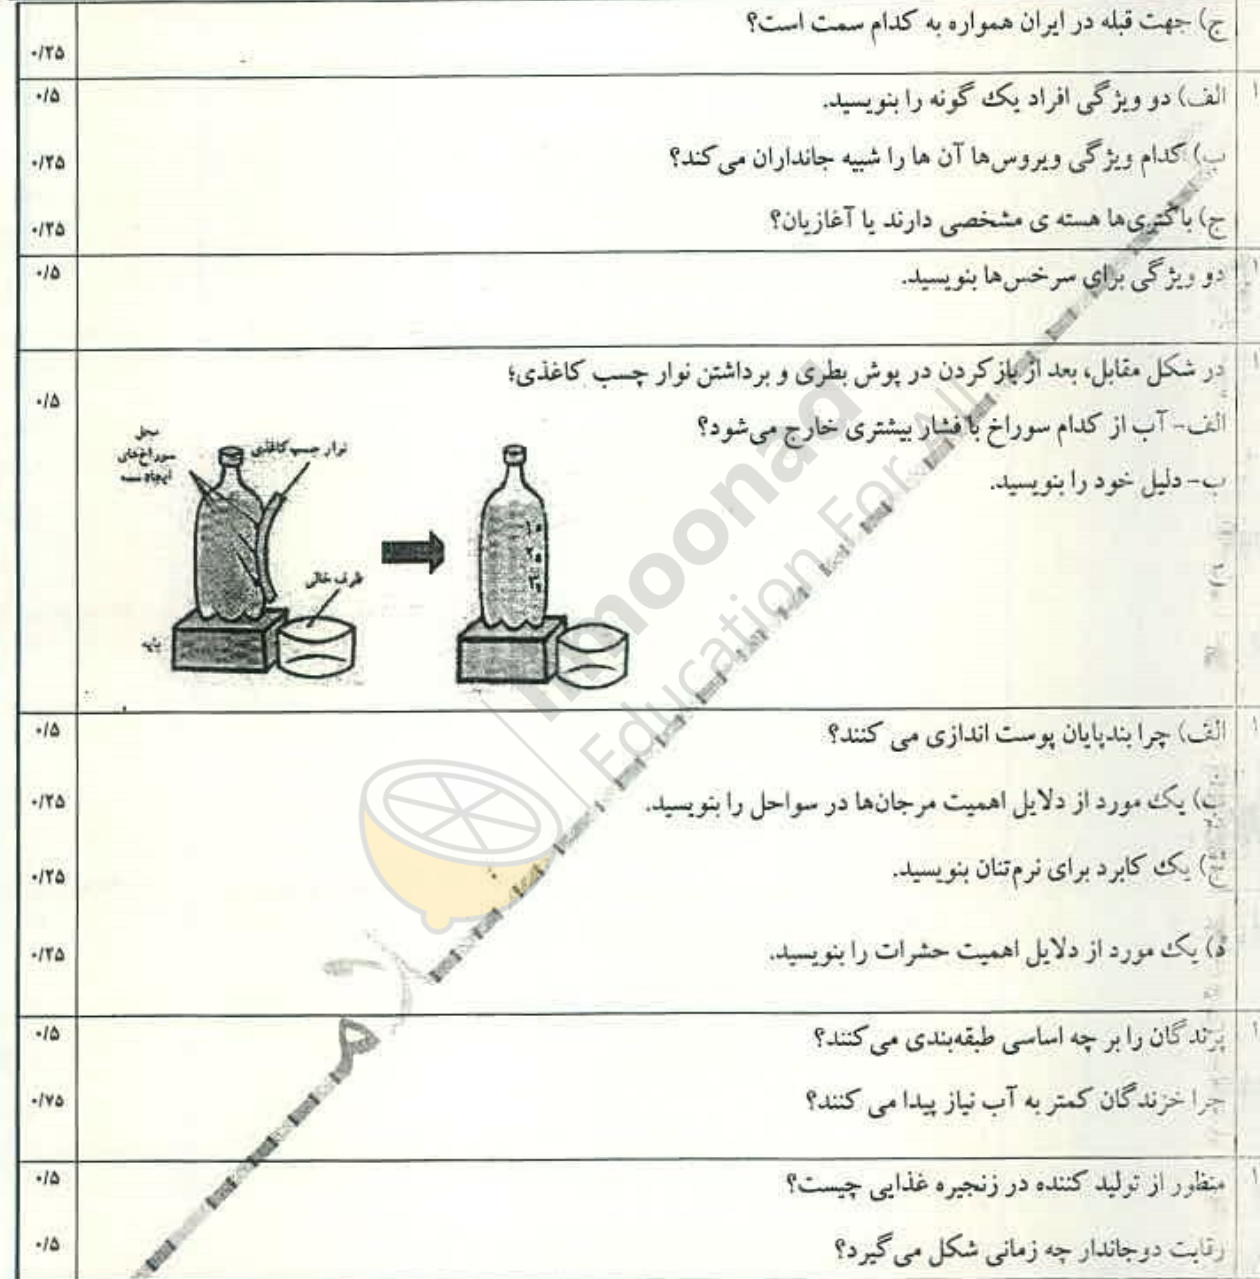 ج) جهت قبله در ایران همواره به کدام سمت است؟
۰/۲۵
الف) دو ویژگی افراد یک گونه را بنویسید.
۰/۵
ب) کدام ویژگی ویروس‌ها آن ها را شبیه جانداران می کند؟
۰/۲۵
ج) باکتری‌ها هسته ی مشخصی دارند یا آغازیان؟
۰/۲۵
دو ویژگی برای سرخس‌ها بنویسید.
۰/۵
در شکل مقابل، بعد از باز کردن در پوش بطری و برداشتن نوار چسب کاغذی؛
۰/۵
الف- آب از کدام سوراخ با فشار بیشتری خارج می‌شود؟
ب- دلیل خود را بنویسید.
محل
سوراخ‌های
ایجاد شده
نوار چسب کاغذی
ظرف خالی
پایه
الف) چرا بندپایان پوست اندازی می کنند؟
۰/۵
ب) یک مورد از دلایل اهمیت مرجان‌ها در سواحل را بنویسید.
۰/۲۵
ج) یک کابرد برای نرم‌تنان بنویسید.
۰/۲۵
د) یک مورد از دلایل اهمیت حشرات را بنویسید.
۰/۲۵
پرندگان را بر چه اساسی طبقه‌بندی می کنند؟
۰/۵
چرا خزندگان کمتر به آب نیاز پیدا می کنند؟
۰/۷۵
منظور از تولید کننده در زنجیره غذایی چیست؟
۰/۵
رقابت دوجاندار چه زمانی شکل می گیرد؟
۰/۵
limoonad
Education For All